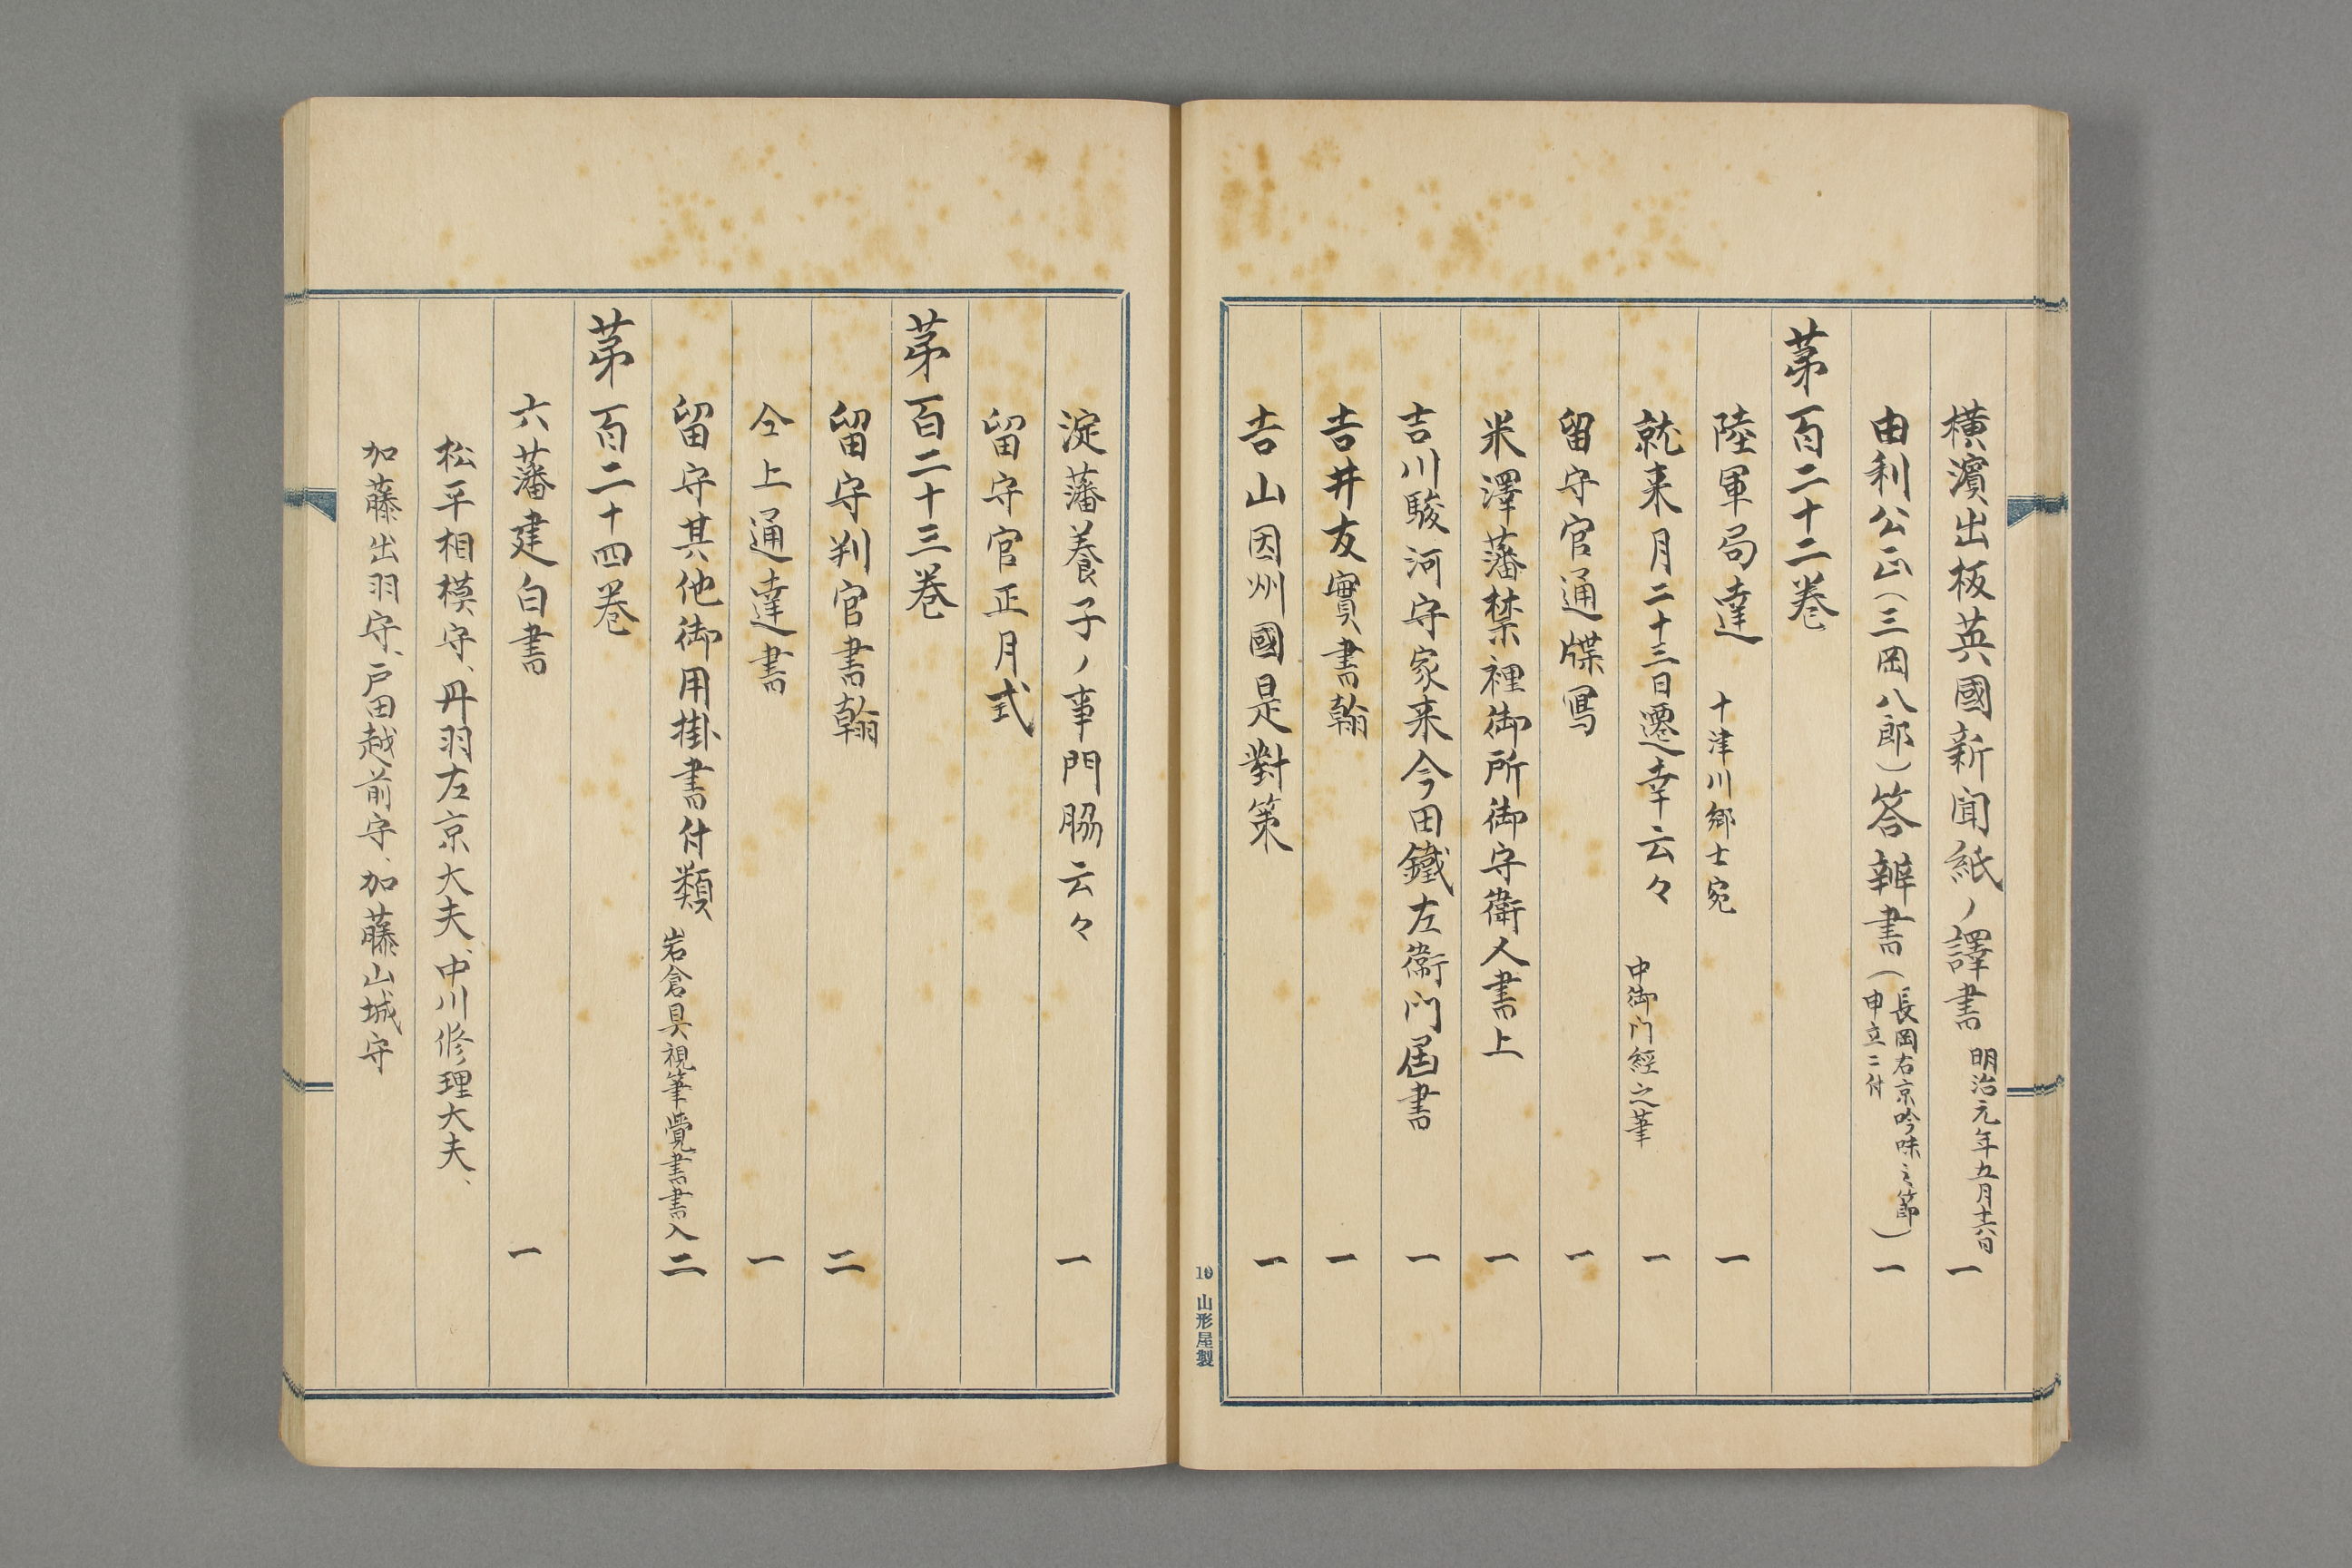 横濱出板英國新聞紙ノ譯書 明治元年五月十六日 一
由利公正(三岡八郎)答辨書(長岡右京吟味之節申立ニ付) 一
第百二十二巻
陸軍局達 十津川郷士宛 一
就来月二十三日遷幸云々 中御門經之筆 一
留守官通牒寫 一
米澤藩禁裡御所御守衛人書上 一
吉川駿河守家来今田鐵左衛門届書 一
吉井友實書翰 一
吉山因州國是對策 一
10 山形屋製
淀藩養子ノ事門脇云々 一
留守官正月式
第百二十三巻
留守判官書翰 二
仝上通達書 一
留守其他御用掛書付類 岩倉具視筆覺書書入 二
第百二十四巻
六藩建白書 一
松平相模守、丹羽左京大夫、中川修理大夫、
加藤出羽守、戸田越前守、加藤山城守